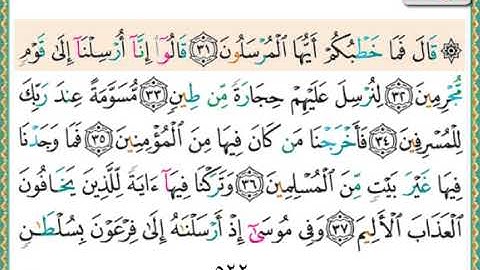 ۞ قَالَ فَمَا خَطۡبُكُمۡ أَيُّهَا ٱلۡمُرۡسَلُونَ ٣١ قَالُوٓاْ إِنَّآ أُرۡسِلۡنَآ إِلَىٰ قَوۡمٖ
مُّجۡرِمِينَ ٣٢ لِنُرۡسِلَ عَلَيۡهِمۡ حِجَارَةٗ مِّن طِينٖ ٣٣ مُّسَوَّمَةً عِندَ رَبِّكَ
لِلۡمُسۡرِفِينَ ٣٤ فَأَخۡرَجۡنَا مَن كَانَ فِيهَا مِنَ ٱلۡمُؤۡمِنِينَ ٣٥ فَمَا وَجَدۡنَا
فِيهَا غَيۡرَ بَيۡتٖ مِّنَ ٱلۡمُسۡلِمِينَ ٣٦ وَتَرَكۡنَا فِيهَآ ءَايَةٗ لِّلَّذِينَ يَخَافُونَ
ٱلۡعَذَابَ ٱلۡأَلِيمَ ٣٧ وَفِي مُوسَىٰٓ إِذۡ أَرۡسَلۡنَٰهُ إِلَىٰ فِرۡعَوۡنَ بِسُلۡطَٰنٖ
٥٢٢